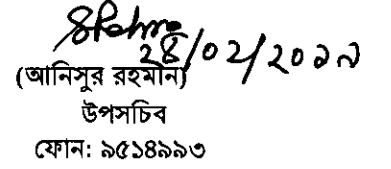 ২৪/০২/২০১৯
(আনিসুর রহমান)
উপসচিব
ফোন: ৯৫১৪৯৯৩